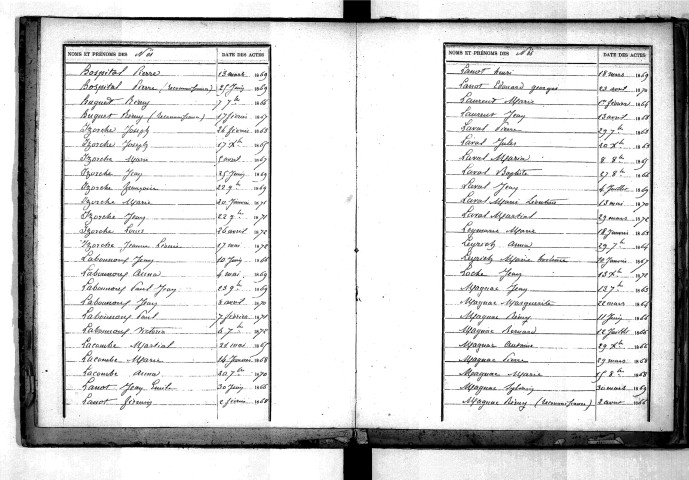 NOMS ET PRÉNOMS DES Nés DATE DES ACTES
Hospital Pierre 13 mars 1869
Hospital Pierre (reconnaissance) 25 Juin 1869
Huguet Rémy 7 7bre 1866
Huguet Rémy (reconnaissance) 17 février 1867
Izorche Joseph 26 février 1863
Izorche Joseph 17 Xbre 1865
Izorche Marie 2 avril 1867
Izorche Jean 25 Juin 1869
Izorche Françoise 22 9bre 1869
Izorche Marie 20 Janvier 1871
Izorche Jean 22 9bre 1871
Izorche Louis 26 avril 1872
Izorche Jeanne 17 mai 1872
Labonnoux Jean 10 Juin 1866
Labonnoux Anna 4 mai 1869
Labonnoux Paul Jean 23 9bre 1869
Labonnoux Jean 3 avril 1870
Labonnoux Paul 7 février 1871
Labonnoux Victoria 6 7bre 1872
Lacombe Martial 21 mai 1865
Lacombe Marie 14 Janvier 1868
Lacombe Anna 30 7bre 1870
Lanot Jean Emile 30 Juin 1866
Lanot Firmin 2 février 1868
NOMS ET PRÉNOMS DES Nés DATE DES ACTES
Lanot Henri 18 mars 1869
Lanot Edouard Georges 23 avril 1870
Laurent Marie 1er février 1866
Laurent Jean 13 avril 1868
Laval Pierre 29 7bre
Laval Jules 20 Xbre 1863
Laval Maria 8 8bre 1865
Laval Baptiste 27 8bre 1866
Laval Jean 4 Juillet 1869
Laval Marie Léontine 13 mai 1870
Laval Martial 29 mars 1872
Leymarie Marie 18 Janvier 1863
Leyrich Anna 29 7bre 1864
Leyrich Marie 20 Janvier 1867
Loche Jean 13 Xbre 1872
Magnac Jean 13 7bre 1863
Magnac Marguerite 22 mars 1866
Magnac Rémy 11 Juin 1866
Magnac Bernard 12 Juillet 1866
Magnac Antoine 29 Xbre 1866
Magnac Pierre 29 mars 1868
Magnac Marie 15 8bre 1868
Magnac Sylvain 30 mars 1869
Magnac Rémy (reconnaissance) 2 avril 1866